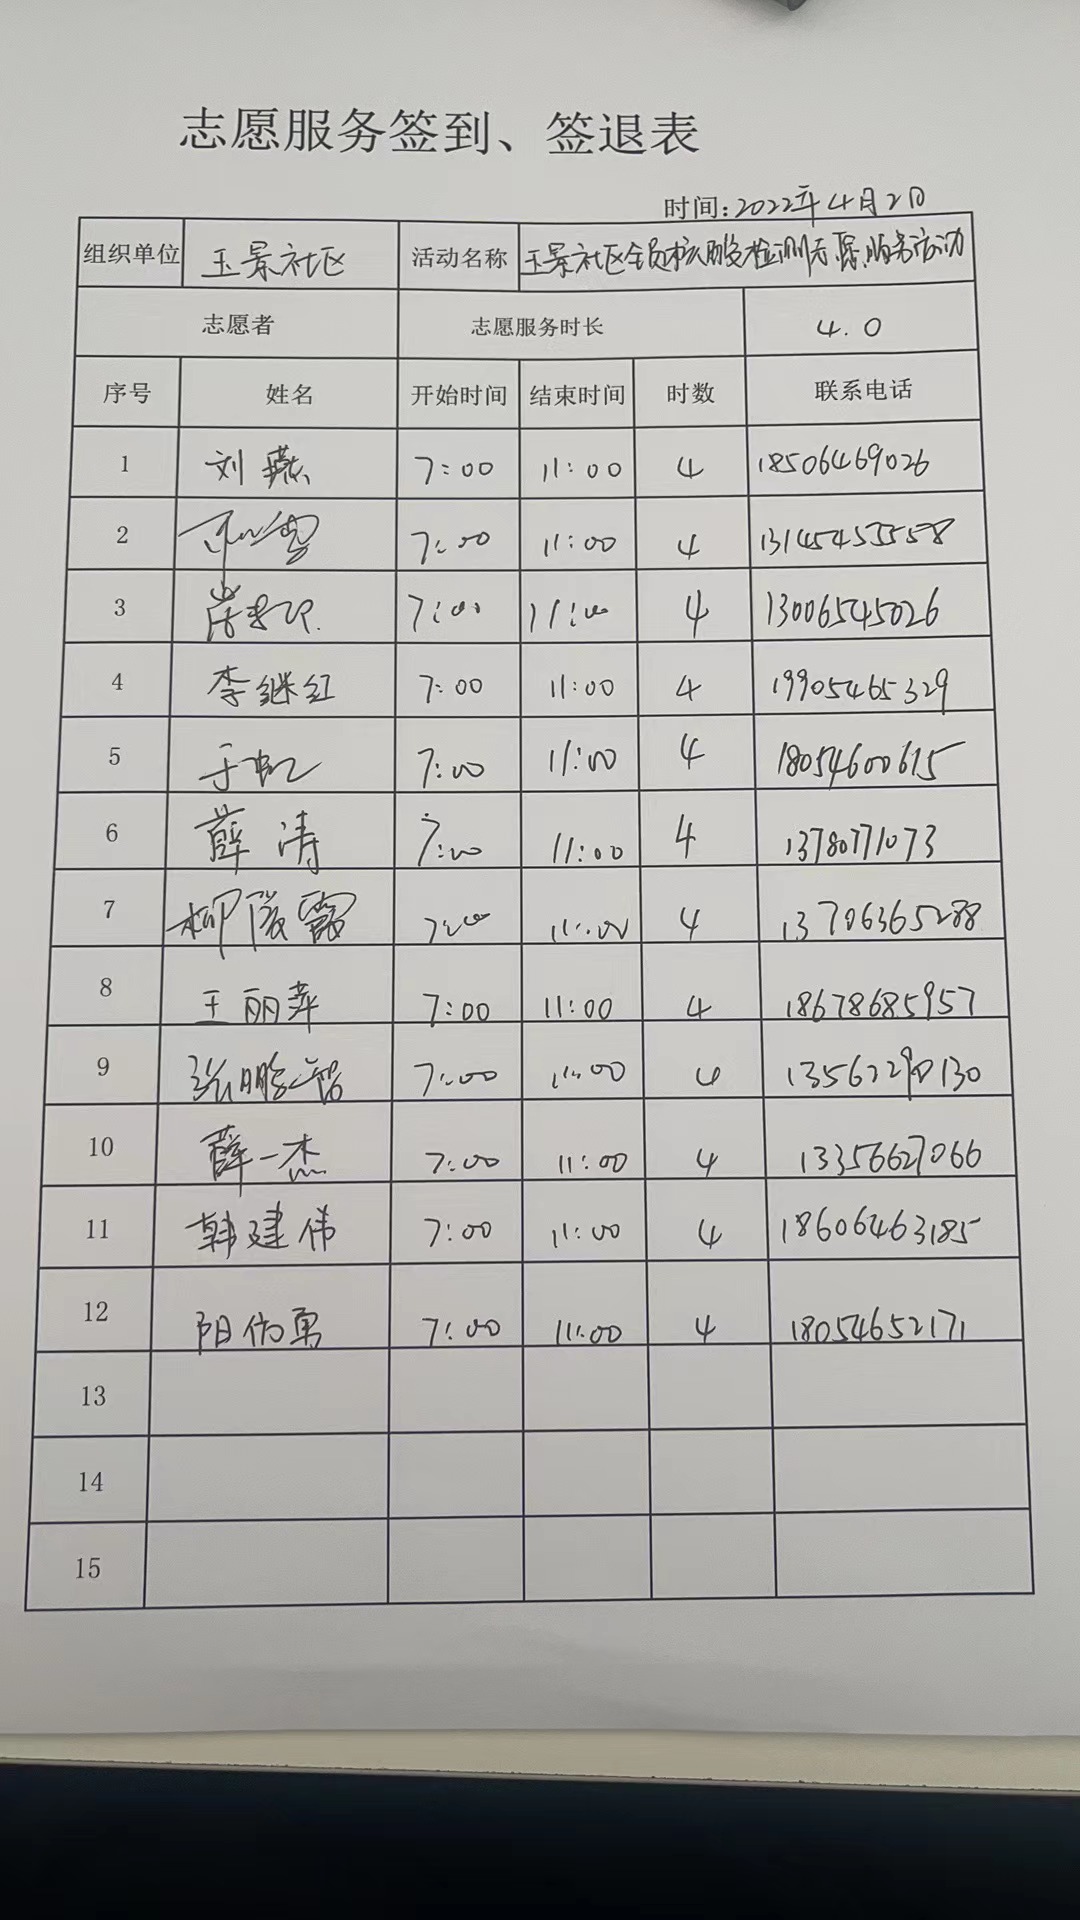 志愿服务签到、签退表
时间:2022年4月2日
组织单位 玉景社区 活动名称 玉景社区全员核酸检测志愿服务活动
志愿者 志愿服务时长 4.0
序号 姓名 开始时间 结束时间 时数 联系电话
1 刘燕 7:00 11:00 4 18506469026
2 7:00 11:00 4 13145455558
3 7:00 11:00 4 13006545026
4 李继红 7:00 11:00 4 19905465329
5 于虹 7:00 11:00 4 18054600615
6 薛涛 7:00 11:00 4 13780771073
7 柳 霞 7:00 11:00 4 13706365288
8 王丽萍 7:00 11:00 4 18678685957
9 张鹏 7:00 11:00 4
10 薛一杰 7:00 11:00 4 13356627066
11 韩建伟 7:00 11:00 4 18606463185
12 阳伟勇 7:00 11:00 4 18054652171
13
14
15